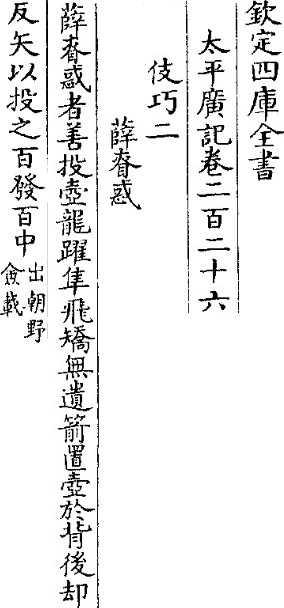 欽定四庫全書
太平廣記卷二百二十六
伎巧二
薛眘惑
薛眘惑者善投壺龍躍隼飛矯無遺箭置壺於背後却
反矢以投之百發百中出朝野
僉載